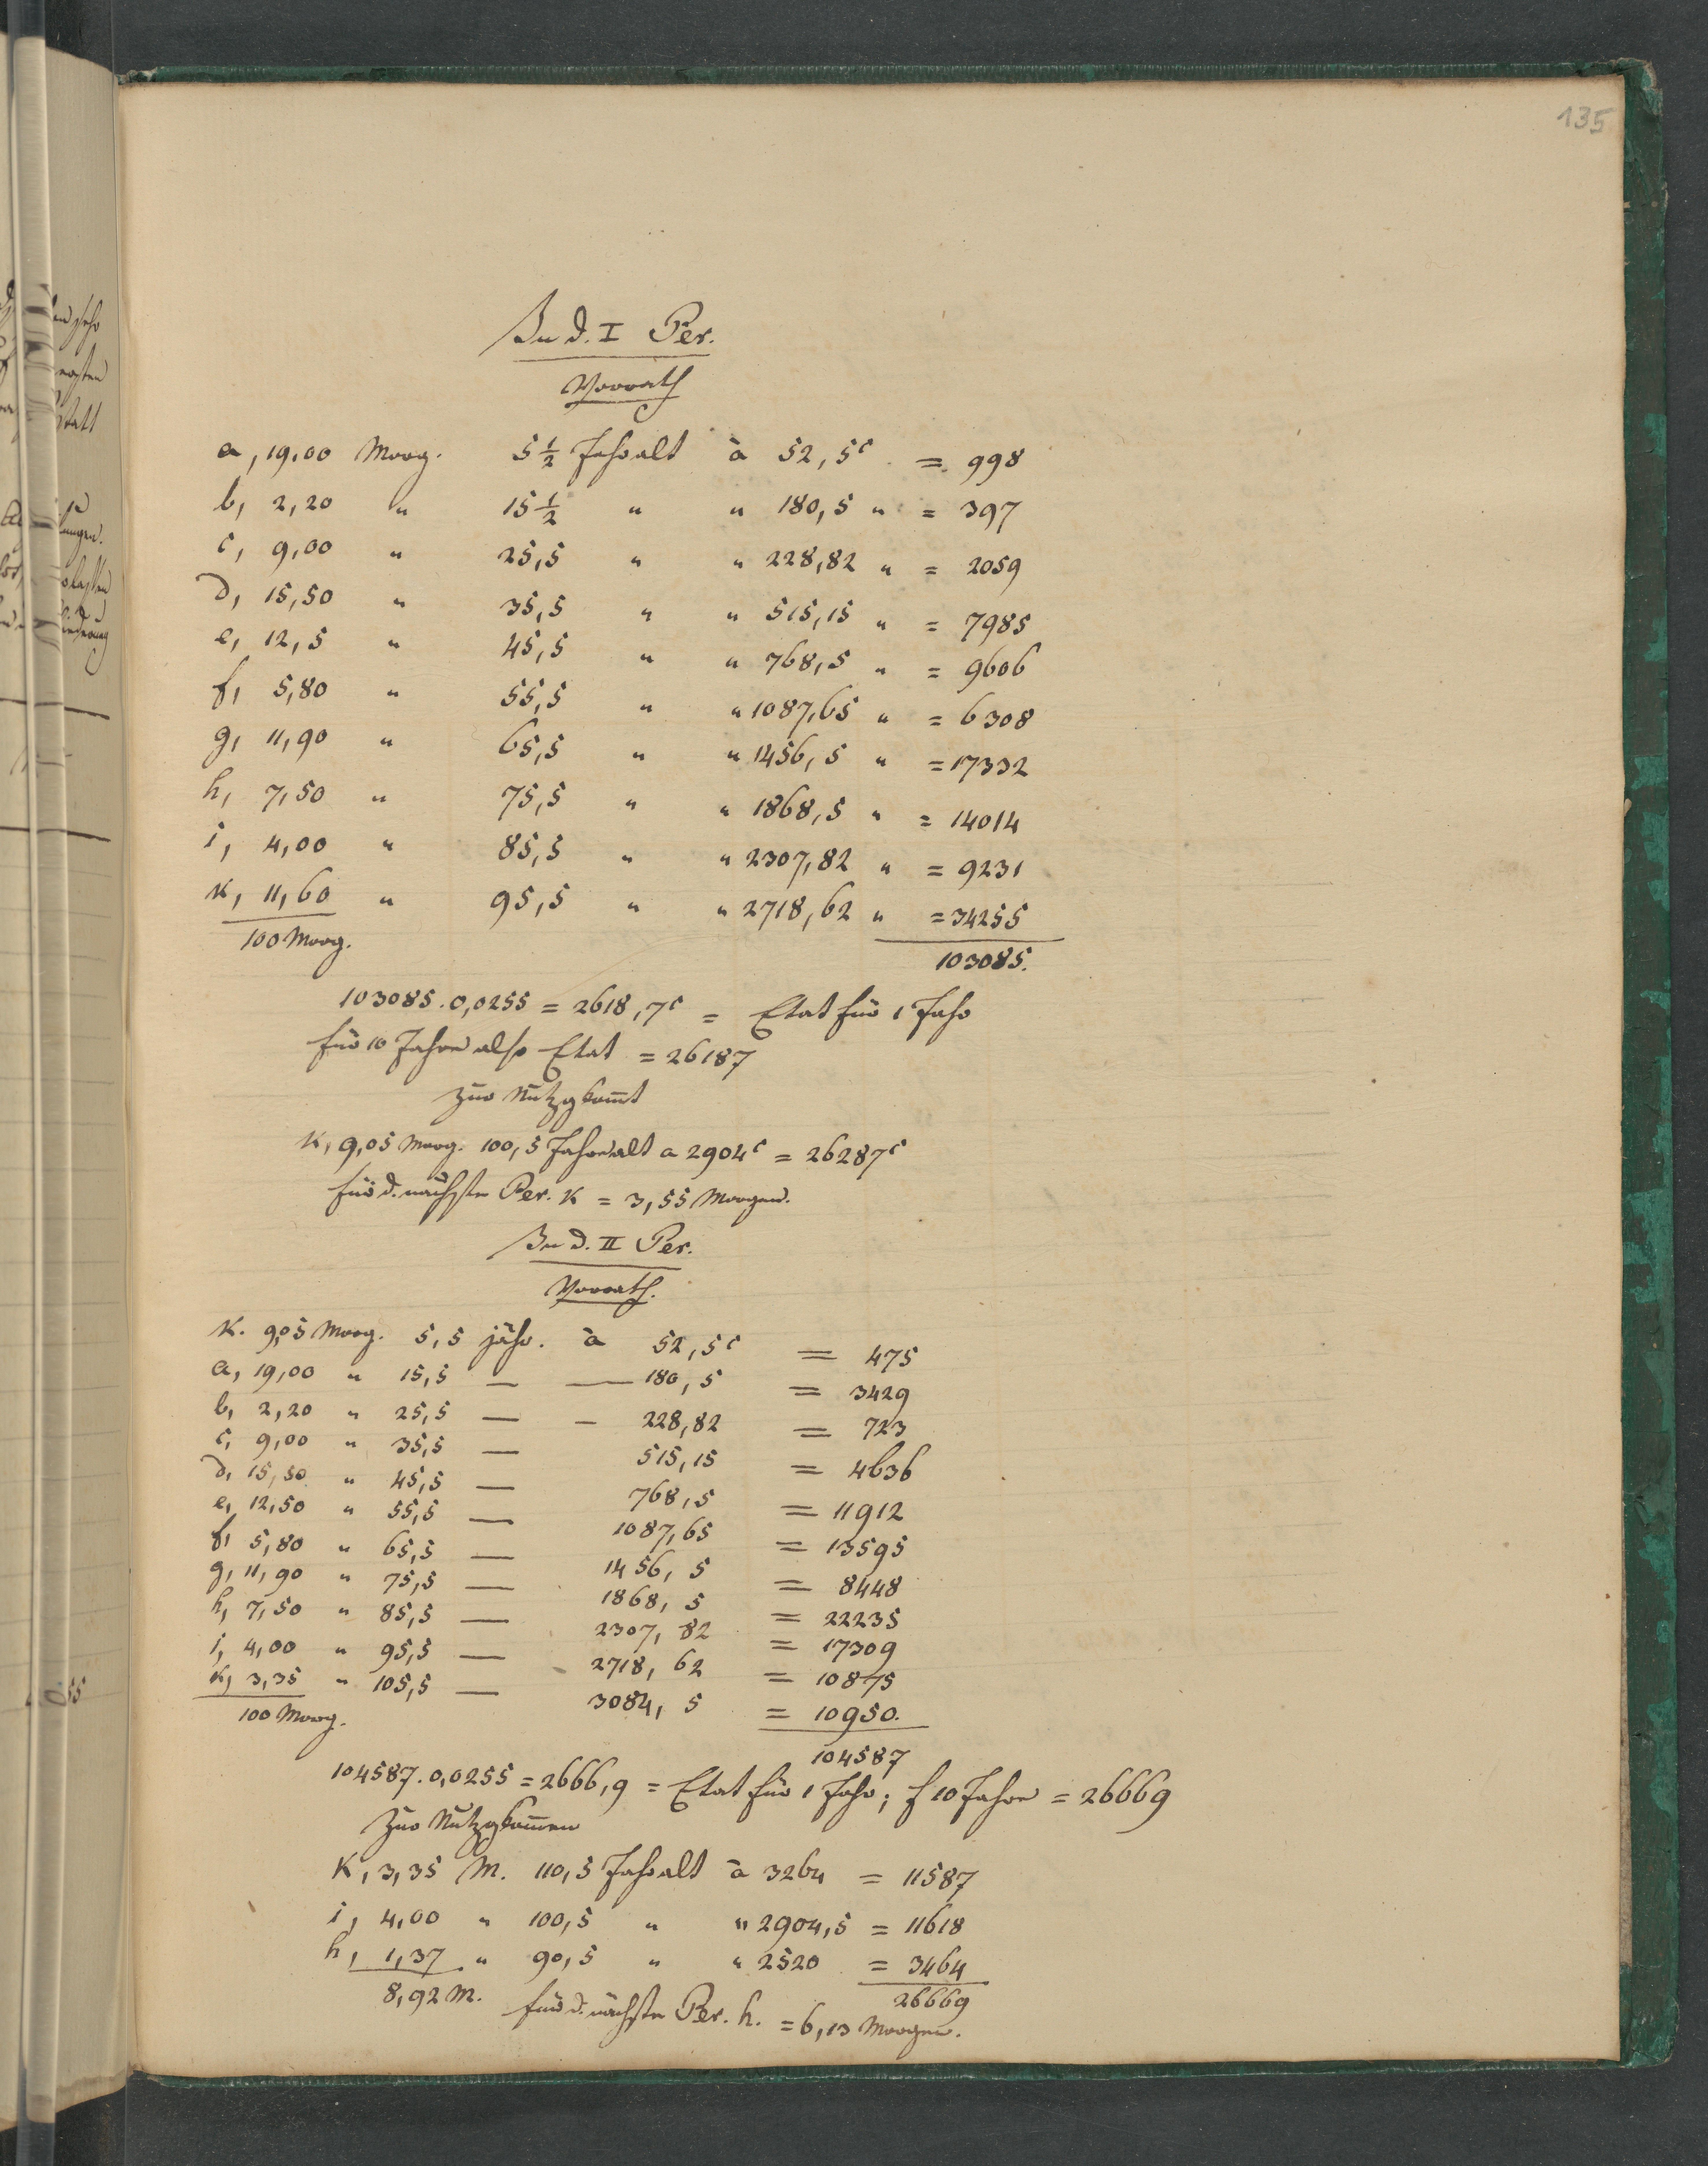 135
In d. I Per.
Vorrath
a, 19,00 Morg. 5 1/2 Jahr alt à 52,5 c = 998
b, 2,20 " 15 1/2 " " 180,5 " = 397
c, 9,00 " 25,5 " " 228,82 " = 2059
d, 15,50 " 35,5 " " 515,15 " = 7985
e, 12,5 " 45,5 " " 768,5 " = 9606
f, 5,80 " 55,5 " " 1087,65 " = 6308
g, 11,90 " 65,5 " " 1456,5 " = 17332
h, 7,50 " 75,5 " " 1868,5 " = 14014
i, 4,00 " 85,5 " " 2307,82 " = 9231
K, 11,60 " 95,5 " " 2718,62 " = 34255
100 Morg. 103085.
103085 . 0,0255 = 2618,7 c = Etat für 1 Jahr
für 10 Jahre also Etat = 26187
zur Nutzg kom̄t
K, 9,05 Morg. 100,5 Jahre alt a 2904 c = 26287 c
für d. nächste Per. K = 3,55 Morgen.
In d. II Per.
Vorrath.
K. 9,05 Morg. 5,5 jähr. à 52,5 c = 475
a, 19,00 " 15,5 — — 180,5 = 3429
b, 2,20 " 25,5 — – 228,82 = 723
c, 9,00 " 35,5 — 515,15 = 4636
d, 15,50 " 45,5 — 768,5 = 11912
e, 12,50 " 55,5 — 1087,65 = 13595
f, 5,80 " 65,5 — 1456,5 = 8448
g, 11,90 " 75,5 — 1868,5 = 22235
h, 7,50 " 85,5 — 2307,82 = 17309
i, 4,00 " 95,5 — 2718,62 = 10875
K, 3,35 " 105,5 — 3084,5 = 10950.
100 Morg. 104587
104587 . 0,0255 = 2666,9 = Etat für 1 Jahr; f 10 Jahre = 26669
Zur Nutzg kom̄en
K, 3,35 M. 110,5 Jahr alt à 3264 = 11587
i, 4,00 " 100,5 " " 2904,5 = 11618
h, 1,37 " 90,5 " " 2520 = 3464
8,92 M. 26669
für d. nächste Per. h. = 6,13 Morgen.